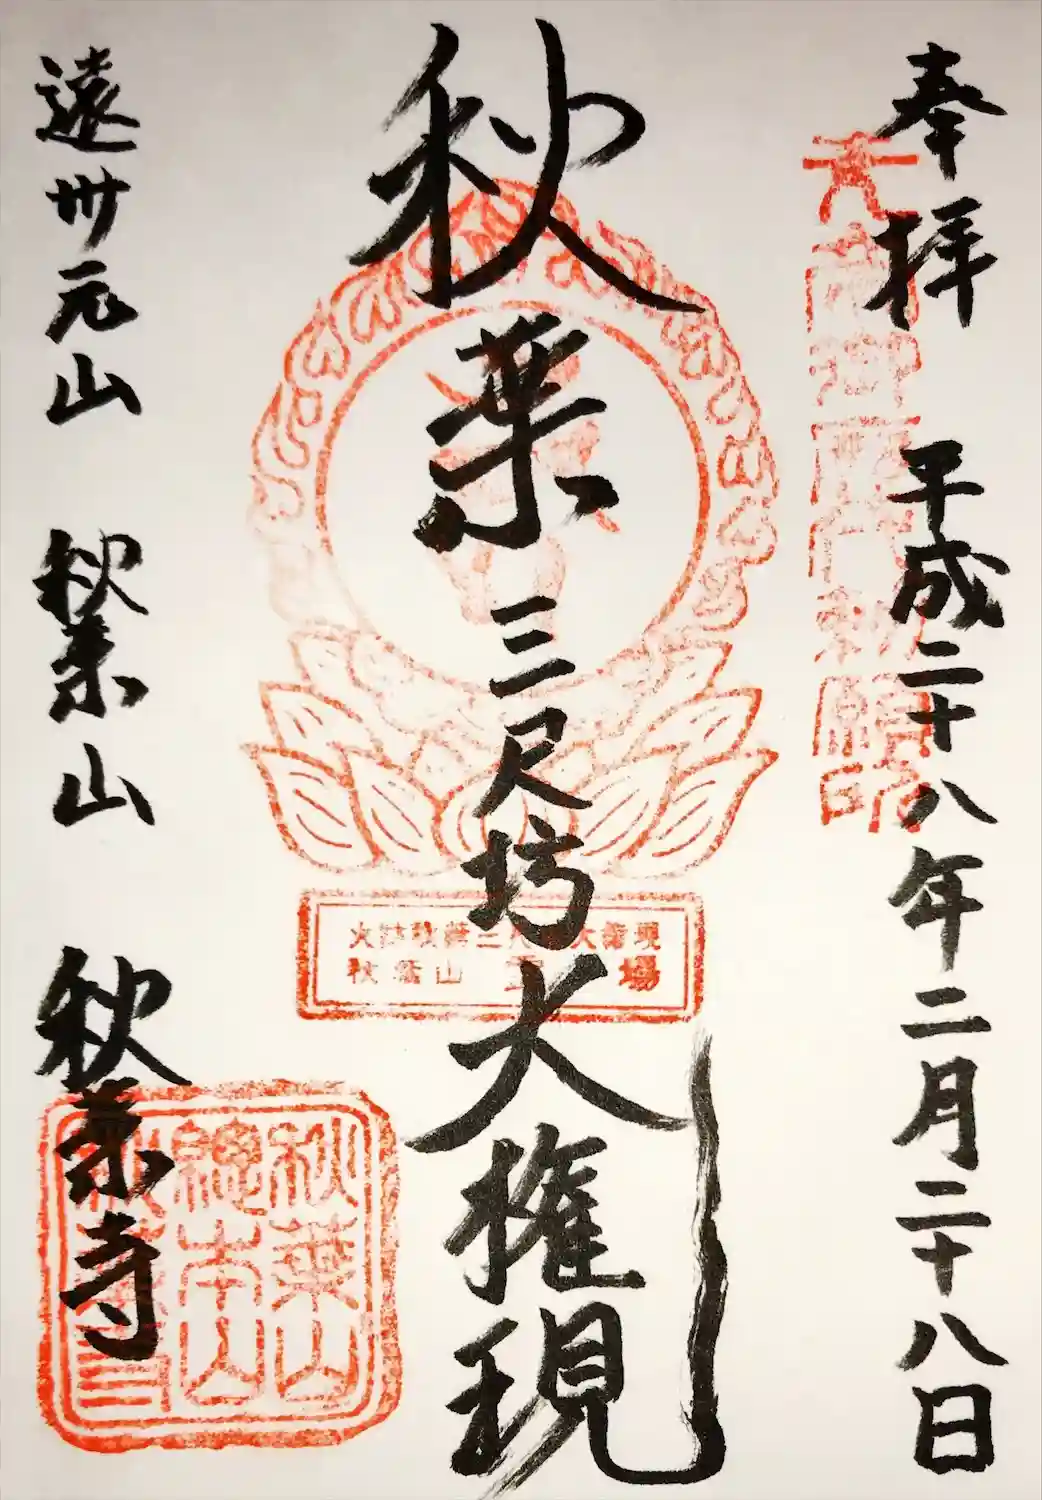 奉拝 平成二十八年二月二十八日
秋葉三尺坊大権現
秋葉山
場
遠州元山 秋葉山 秋葉寺
秋葉山
總本山